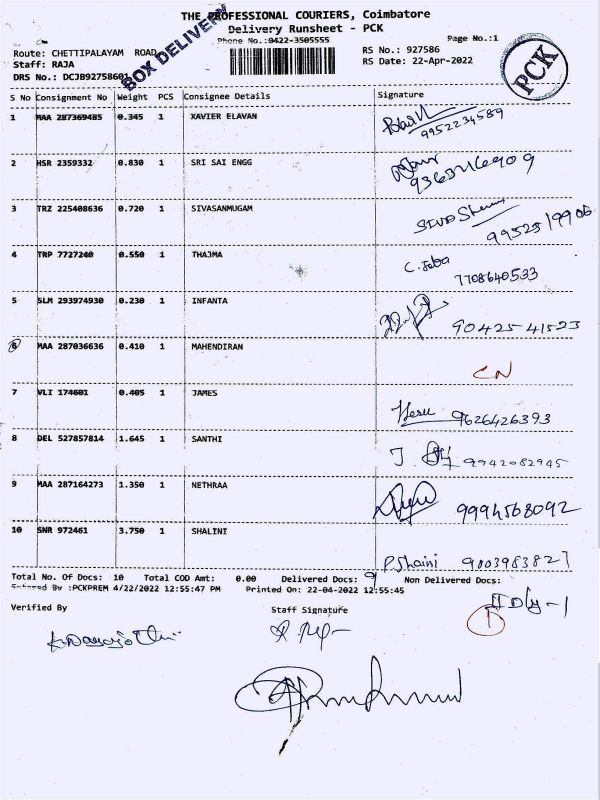 THE PROFESSIONAL COURIERS, Coimbatore
Delivery Runsheet - PCK
Phone No.:0422-3505555
Page No.:1
BOX DELIVERY
PCK
Route: CHETTIPALAYAM ROAD
RS No.: 927586
Staff: RAJA
RS Date: 22-Apr-2022
DRS No.: DCJB92758601
S No Consignment No Weight PCS Consignee Details Signature
1 MAA 287369485 0.345 1 XAVIER ELAVAN
9952234589
2 HSR 2359332 0.830 1 SRI SAI ENGG
3 TRZ 225408636 0.720 1 SIVASANMUGAM
9952519906
4 TRP 7727240 0.550 1 THAJMA
7708640533
5 SLM 293974930 0.230 1 INFANTA
90425 41523
6 MAA 287036636 0.410 1 MAHENDIRAN
CN
7 VLI 174601 0.405 1 JAMES
9626426393
8 DEL 527857814 1.645 1 SANTHI
9942082945
9 MAA 287164273 1.350 1 NETHRAA
9994568092
10 SNR 972461 3.750 1 SHALINI
9003983827
Total No. Of Docs: 10 Total COD Amt: 0.00 Delivered Docs: 9 Non Delivered Docs:
Entered By :PCKPREM 4/22/2022 12:55:47 PM Printed On: 22-04-2022 12:55:45
1
Verified By
Staff Signature